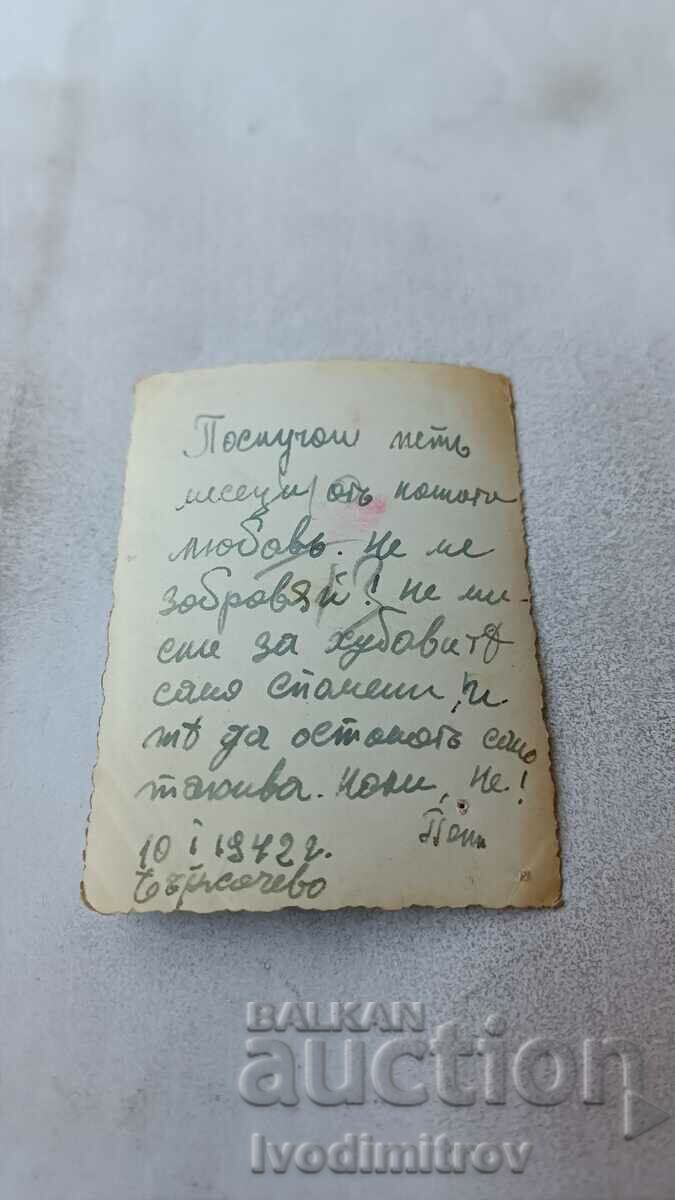 Послучай петь
месеци отъ нашата
любовь. Не ме
забравяй! Не ми-
сли за хубавитѣ
само спомени, и
тѣ да останатъ само
такива. Нали, Не!
10 I 1942 г.
BALKAN
auction
Ivodimitrov